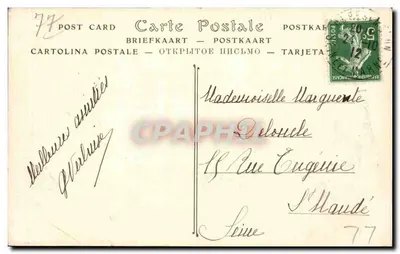 77
POST CARD Carte Postale POSTKARTE
BRIEFKAART - POSTKAART
CARTOLINA POSTALE - ОТКРЫТОЕ ПИСЬМО - TARJETA
Meilleures amitiés
Mademoiselle Marguerite
Deloucle
15 Rue Eugénie
St Mandé
Seine
77